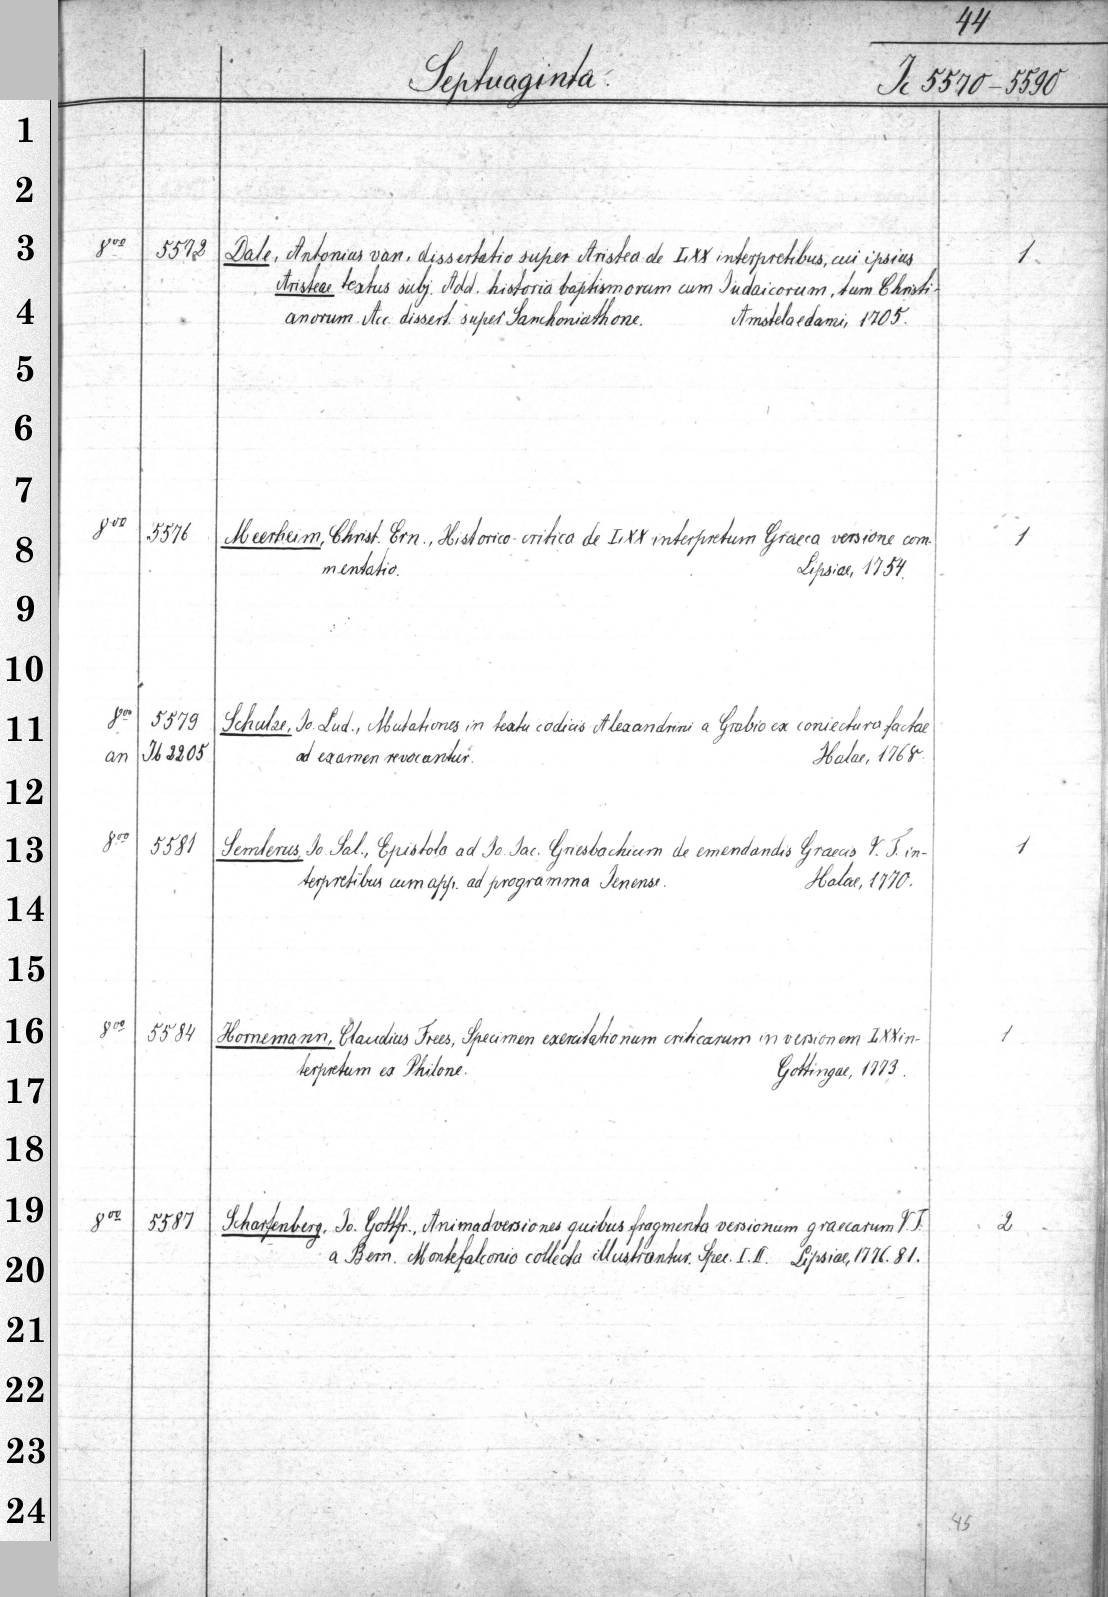 44
Septuaginta.
Ic 5570-5590
1
2
3
8vo 5572 Dale, Antonius van, dissertatio super Aristea de LXX interpretibus, cui ipsius 1
Aristeae textus subj. Add. historia baptismorum cum Iudaicorum, tum Christi-
4
anorum. Acc. dissert. super Sanchoniathone. Amstelaedami, 1705.
5
6
7
8vo 5576 Meerheim, Christ. Ern., Historico-critica de LXX interpretum Graeca versione com- 1
8
mentatio. Lipsiae, 1754.
9
10
8vo 5579 Schulze, Io. Lud., Mutationes in textu codicis Alexandrini a Grabio ex coniectura factae
11
an Ib 2205 ad examen revocantur. Halae, 1768.
12
13
8vo 5581 Semlerus, Io. Sal., Epistola ad Io. Iac. Griesbachium de emendandis Graecis V. T. in- 1
terpretibus cum app. ad programma Ienense. Halae, 1770.
14
15
16
8vo 5584 Hornemann, Claudius Frees, Specimen exercitationum criticarum in versionem LXX in- 1
terpretum ex Philone. Gottingae, 1773.
17
18
19
8vo 5587 Scharfenberg, Io. Gottfr., Animadversiones quibus fragmenta versionum graecarum V. T. 2
a Bern. Montefalconio collecta illustrantur. Spec. I. II. Lipsiae, 1776. 81.
20
21
22
23
24
45